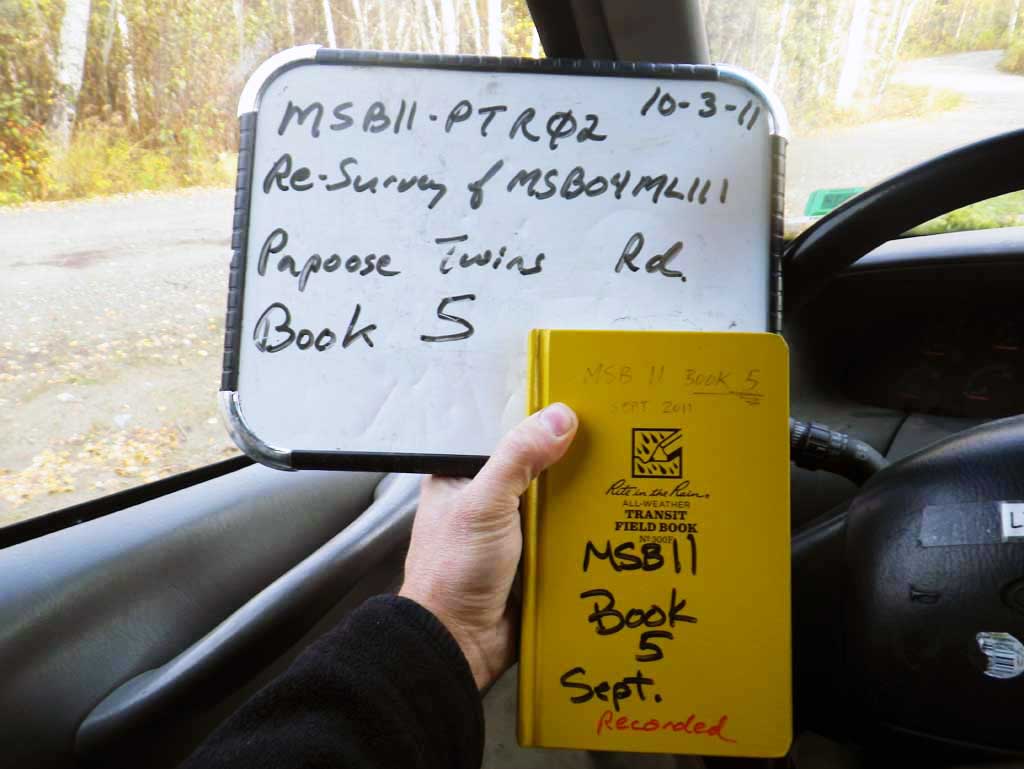 MSB11-PTRØ2 10-3-11
Re-Survey of MSB04ML111
Papoose Twins Rd.
Book 5
MSB 11 BOOK 5
SEPT 2011
Rite in the Rain
ALL-WEATHER
TRANSIT
FIELD BOOK
Nº 300F
MSB11
Book
5
Sept.
Recorded